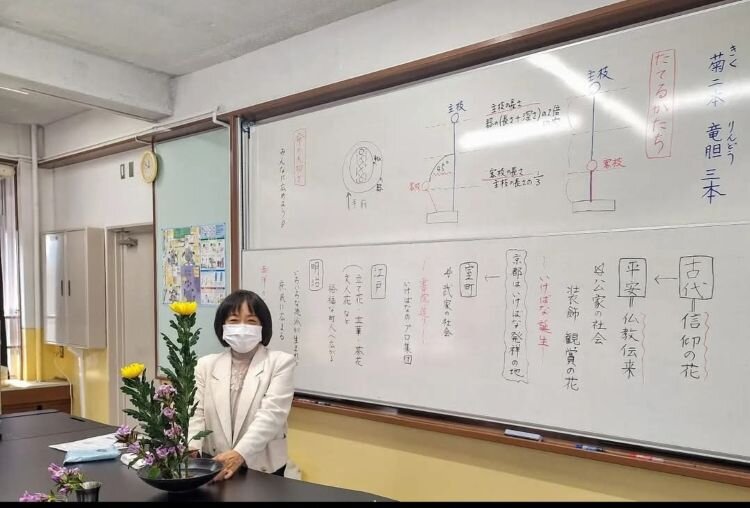 きく りんどう
菊二本 竜胆三本
たてるかたち
主枝
客枝
主枝の長さ
器の(長さ+深さ)の2倍
客枝の長さ
主枝の長さの1/3
主枝
45°
客枝
みんなに広めよう
古代=信仰の花
平安=仏教伝来
公家の社会
装飾 観賞の花
いけばな誕生
京都はいけばな発祥の地
室町
武家の社会
書院造り
いけばなのプロ集団
江戸
立て花 立華 生花
文人花など
裕福な町人へ広がる
明治
いろいろな流派が生まれ
庶民に広まる